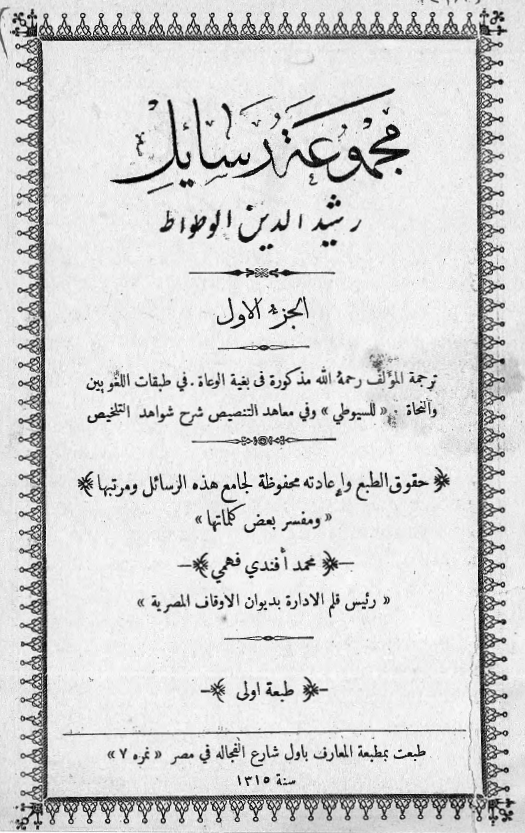 مجموعة رسايل
رشيد الدين الوطواط
الجزء الاول
ترجمة المؤلف رحمهُ الله مذكورة في بغية الوعاة . في طبقات اللغويين
والنحاة . « للسيوطي » وفي معاهد التنصيص شرح شواهد التلخيص
حقوق الطبع وإعادته محفوظة لجامع هذه الرسائل ومرتبها
« ومفسر بعض كلماتها »
محمد أفندي فهمي
« رئيس قلم الادارة بديوان الاوقاف المصرية »
طبعة اولى
طبعت بمطبعة المعارف باول شارع الفجاله في مصر « نمره ٧ »
سنة ١٣١٥